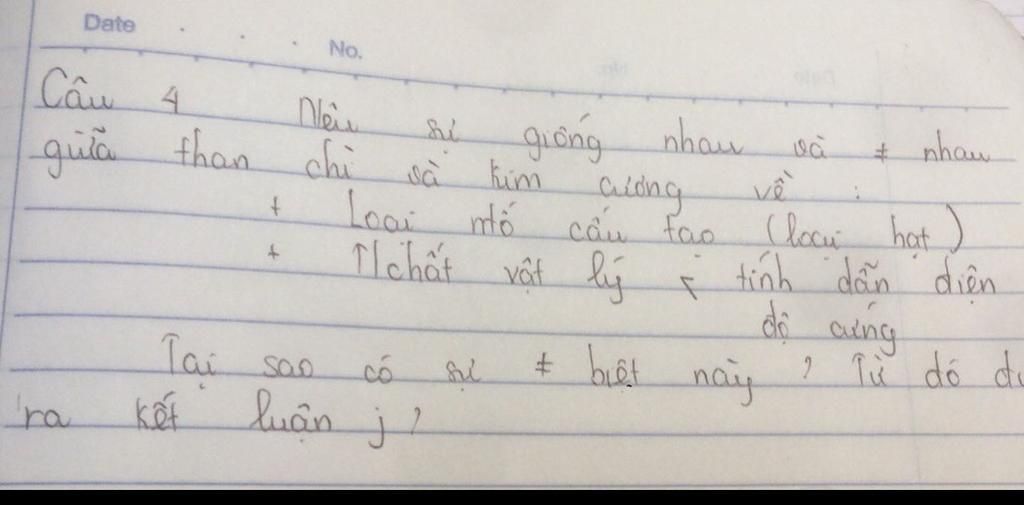 Date . . .
No.
Câu 4 Nêu sự giống nhau và ≠ nhau
giữa than chì và kim cương về :
+ Loại ntố cấu tạo (loại hạt)
+ T/chất vật lý < tính dẫn điện
độ cứng
Tại sao có sự ≠ biệt này ? Từ đó đư
ra kết luận j ?